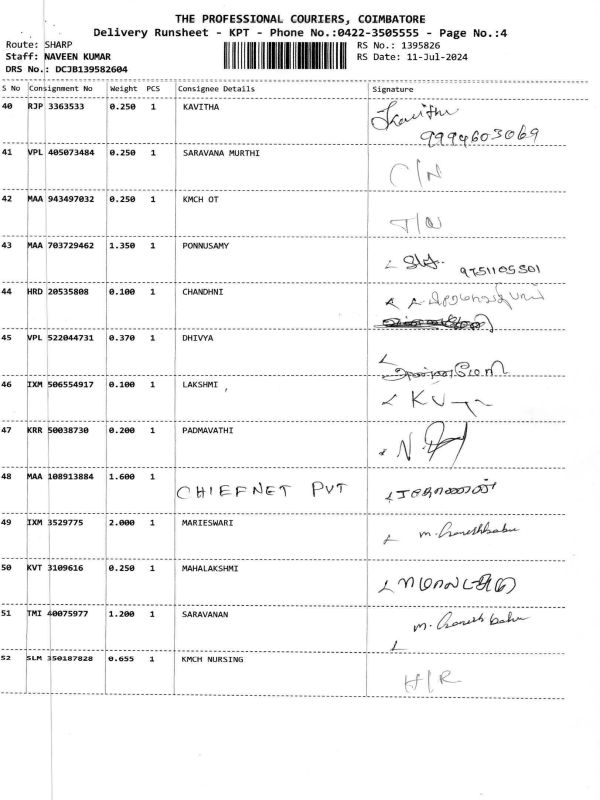 THE PROFESSIONAL COURIERS, COIMBATORE
Delivery Runsheet - KPT - Phone No.:0422-3505555 - Page No.:4
Route: SHARP RS No.: 1395826
Staff: NAVEEN KUMAR RS Date: 11-Jul-2024
DRS No.: DCJB139582604
S No Consignment No Weight PCS Consignee Details Signature
40 RJP 3363533 0.250 1 KAVITHA Kavitha
9994603069
41 VPL 405073484 0.250 1 SARAVANA MURTHI C/N
42 MAA 943497032 0.250 1 KMCH OT T/N
43 MAA 703729462 1.350 1 PONNUSAMY 9751105501
44 HRD 20535808 0.100 1 CHANDHNI
45 VPL 522044731 0.370 1 DHIVYA
46 IXM 506554917 0.100 1 LAKSHMI
47 KRR 50038730 0.200 1 PADMAVATHI
48 MAA 108913884 1.600 1 CHIEFNET PVT
49 IXM 3529775 2.000 1 MARIESWARI m. Ganeshbabu
50 KVT 3109616 0.250 1 MAHALAKSHMI
51 TMI 40075977 1.200 1 SARAVANAN m. Ganesh babu
52 SLM 350187828 0.655 1 KMCH NURSING H/R